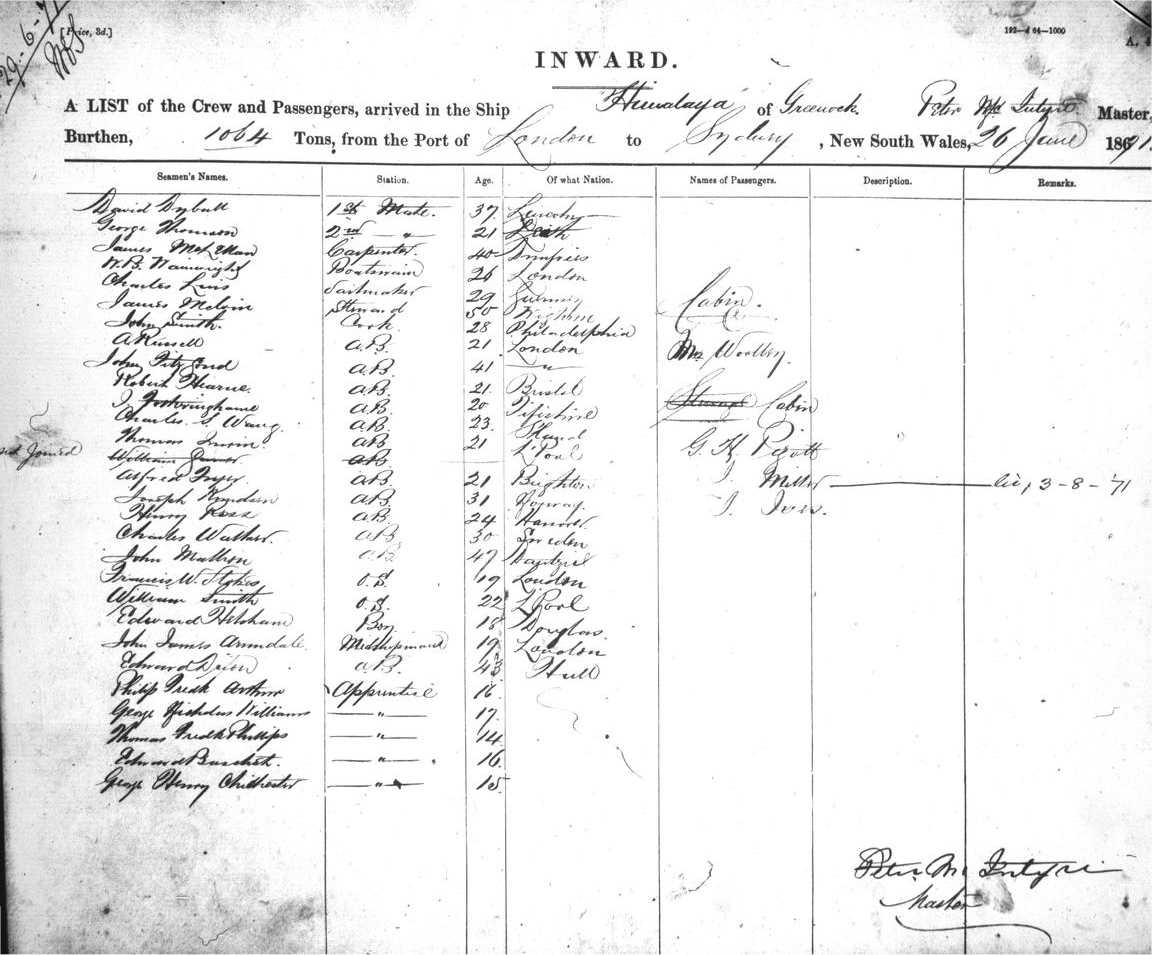 29-6-71
[Price, 3d.]
192—4 64—1000
A. 4
INWARD.
A LIST of the Crew and Passengers, arrived in the Ship Himalaya of Greenock Peter McIntyre Master,
Burthen, 1064 Tons, from the Port of London to Sydney, New South Wales, 26 June 1871
Seamen's Names. Station. Age. Of what Nation. Names of Passengers. Description. Remarks.
David Dyball 1st Mate. 37
George Thomson 2nd — " 21 Leith
James Carpenter 40
W. B. Wainwright Boatswain 26 London
Charles Sailmaker 29
James Melvin Steward 50 Cabin.
John Smith Cook 28 Philadelphia
A Russell A.B. 21 London Mrs Woolley
John A.B. 41 — " —
Robert Hearne A.B. 21 Bristol
J. Fotheringhame A.B. 20 Cabin
Charles A.B. 23
Thomas A.B. 21 L'Pool G. H. Pigott
not Joined William A.B.
Alfred A.B. 21 Brighton J. Miller — 3-8-71
Joseph A.B. 31 Norway J. Ives.
Henry Ross A.B. 24 Hanover
Charles A.B. 30 Sweden
John A.B. 47
Francis W. Stokes O.S. 19 London
William Smith O.S. 22 L'Pool
Edward Boy 18 Douglas
John James Arundale Midshipman 19 London
Edward A.B. 43 Hull
Philip Fredk Arthur Apprentice 16
George Nicholas Williams — " — 17.
Thomas Fredk Phillips — " — 14
Edward — " — 16
George Henry Chichester — " — 15
Peter McIntyre
Master